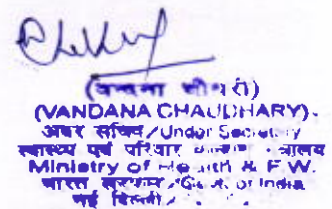 (वन्दना चौधरी)
(VANDANA CHAUDHARY)
अवर सचिव/Under Secretary
स्वास्थ्य एवं परिवार कल्याण मंत्रालय
Ministry of Health & F.W.
भारत सरकार/Govt. of India
नई दिल्ली/